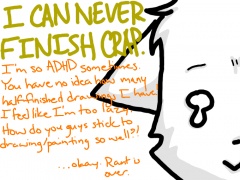 I CAN NEVER
FINISH CRAP.
I'm so ADHD sometimes.
You have no idea how many
half-finished drawings I have!
I feel like I'm too lazy.
How do you guys stick to
drawing/painting so well?!
...okay. Rant is
over.